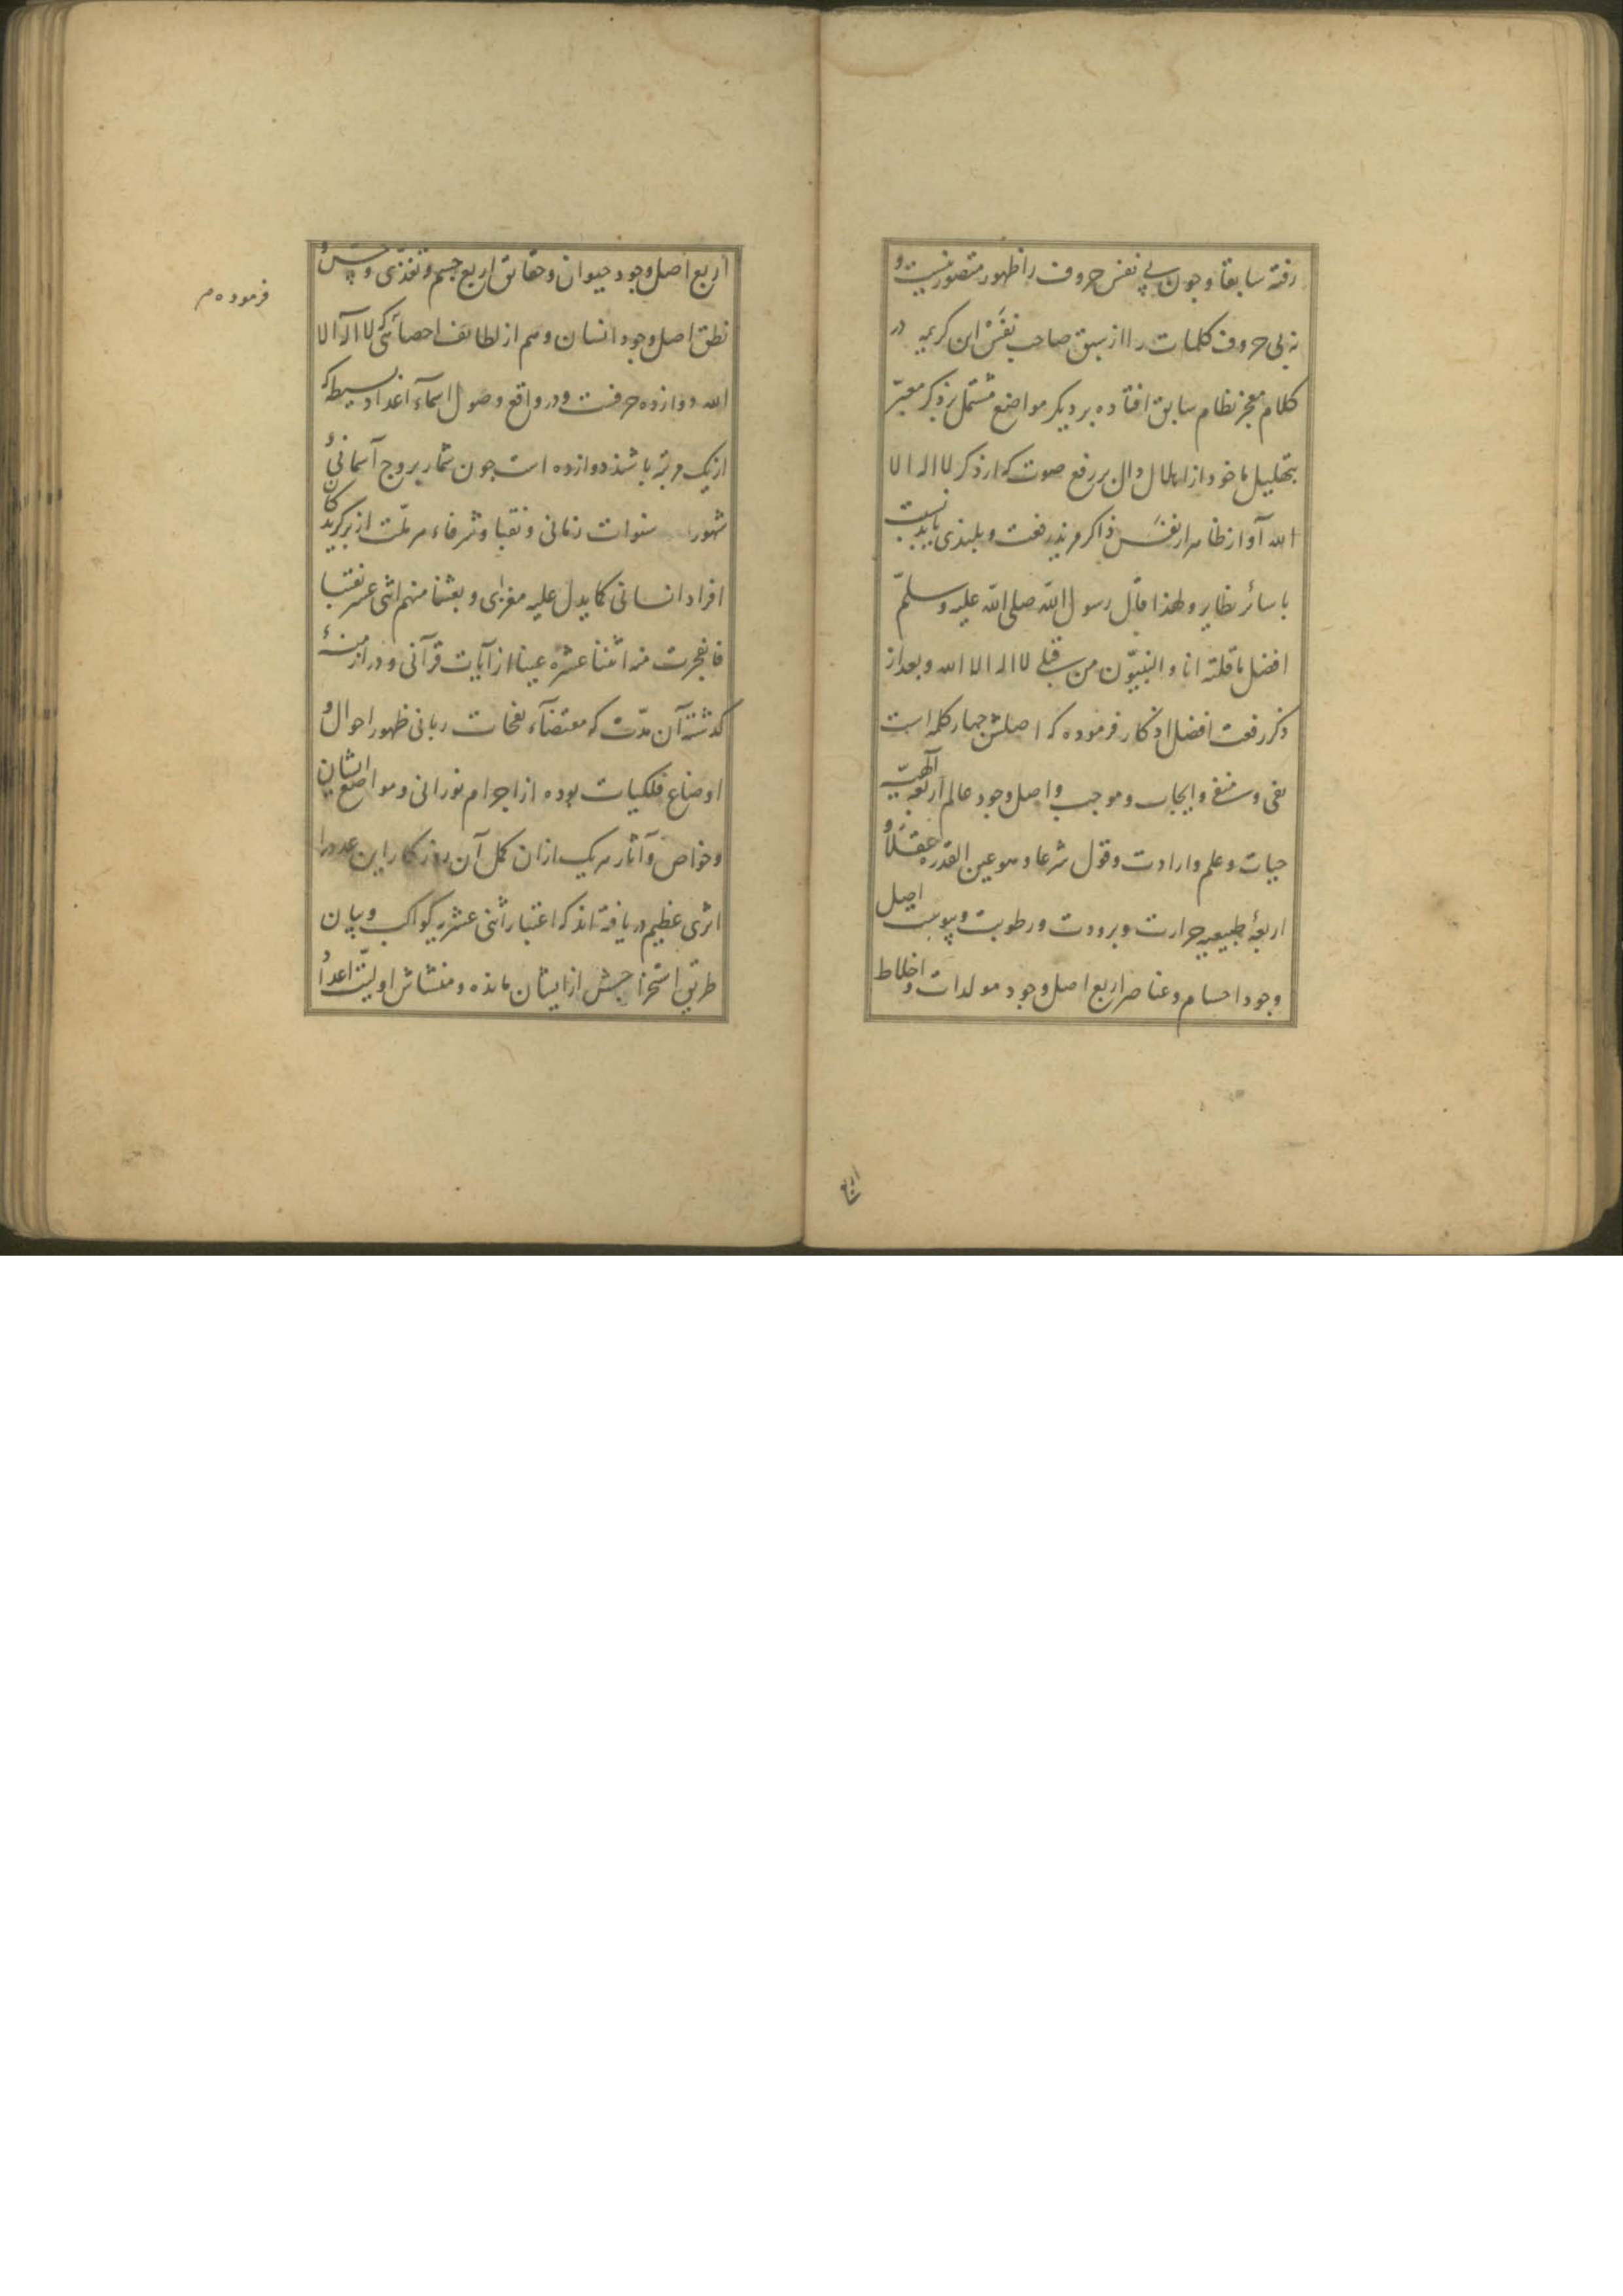 رفته سابقا و جون بی نفس حروف را ظهور متصور نیست و
نه بی حروف کلمات را از سبق صاحب نفَسْ این کریمه در
کلام معجز نظام سابق افتاده بر دیگر مواضع مشتمل بر ذکر معبّر
بتهلیل ماخوذ از اهلال دال بر رفع صوت که از ذکر لا اله الا
الله آواز ظاهر از نفَس ذاکر مزید رفعت و بلندی یابد بنسبت
با سائر نظایر و لهذا قال رسول الله صلی الله علیه وسلّم
افضل ما قلته انا و النبیّون من قبلی لا اله الا الله و بعد از
ذکر رفعت افضل اذکار فرموده که اصلش جهار کلمه است
نفی و منفی و ایجاب و موجب و اصل وجود عالم اربعه آلهیّه
حیات و علم و ارادت و قول شرعا و هو عین القدره عقلاً و
اربعهٔ طبیعیه حرارت و برودت و رطوبت و یبوست اصل
وجود اجسام و عناصر اربع اصل وجود مولدات و اخلاط
اربع
اربع اصل وجود حیوان و حقائق اربع جسم و تغذّی و حسّ و
نطق اصل وجود انسان و هم از لطائف احصائی که لا اله الا
الله دوازده حرفت و در واقع وصول اسمآء اعداد بسیطه که
از یک مرتبه باشد دوازده است جون شمار بروج آسمانی و
شهور سنوات زمانی و نقبا و شرفاء هر ملّت از برگزیدکان
افراد انسانی کما یدل علیه مغزای و بعثنا منهم اثنی عشر نقیبا
فانفجرت منه اثنتا عشره عینا از آیات قرآنی و در ازمنهٔ
کذشته آن مدّت که مقتضآء نفحات ربانی ظهور احوال و
اوضاع فلکیات بوده از اجرام نورانی و مواضع ایشان
و خواص و آثار هر یک از ان کمل آن روزکار این عدد را
اثری عظیم دریافته اند که اعتبار اثنی عشریه کواکب و بیان
طریق استخراجش از ایشان مانده و منشاش اولیّت اعداد
فرموده م